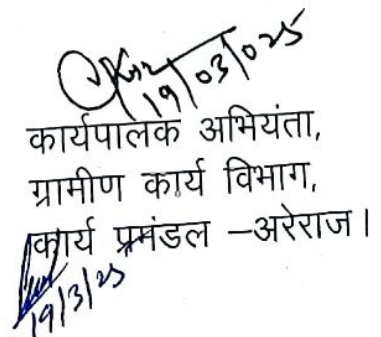 19/03/025
कार्यपालक अभियंता,
ग्रामीण कार्य विभाग,
कार्य प्रमंडल –अरेराज।
19/3/25